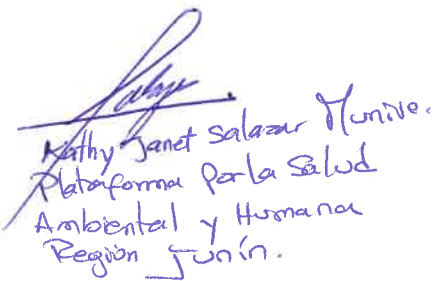 Kathy Janet Salazar Munive.
Plataforma por la Salud
Ambiental y Humana
Región Junín.